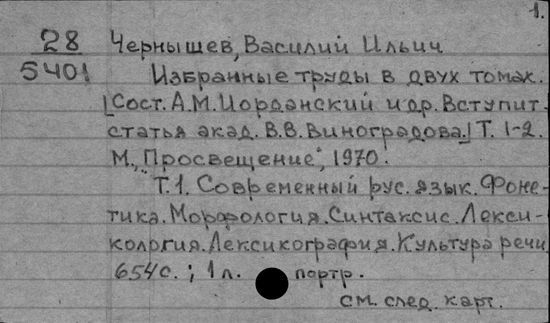 1.
28
5401
Чернышев, Василий Ильич
Избранные труды в двух томах.
[Сост. А.М. Иорданский и др. Вступит.
статья акад. В.В. Виноградова.] Т. 1-2.
М., "Просвещение", 1970.
Т.1. Современный рус. язык. Фоне-
тика. Морфология. Синтаксис. Лекси-
кология. Лексикография. Культура речи
654с.; 1л. портр.
см. след. карт.